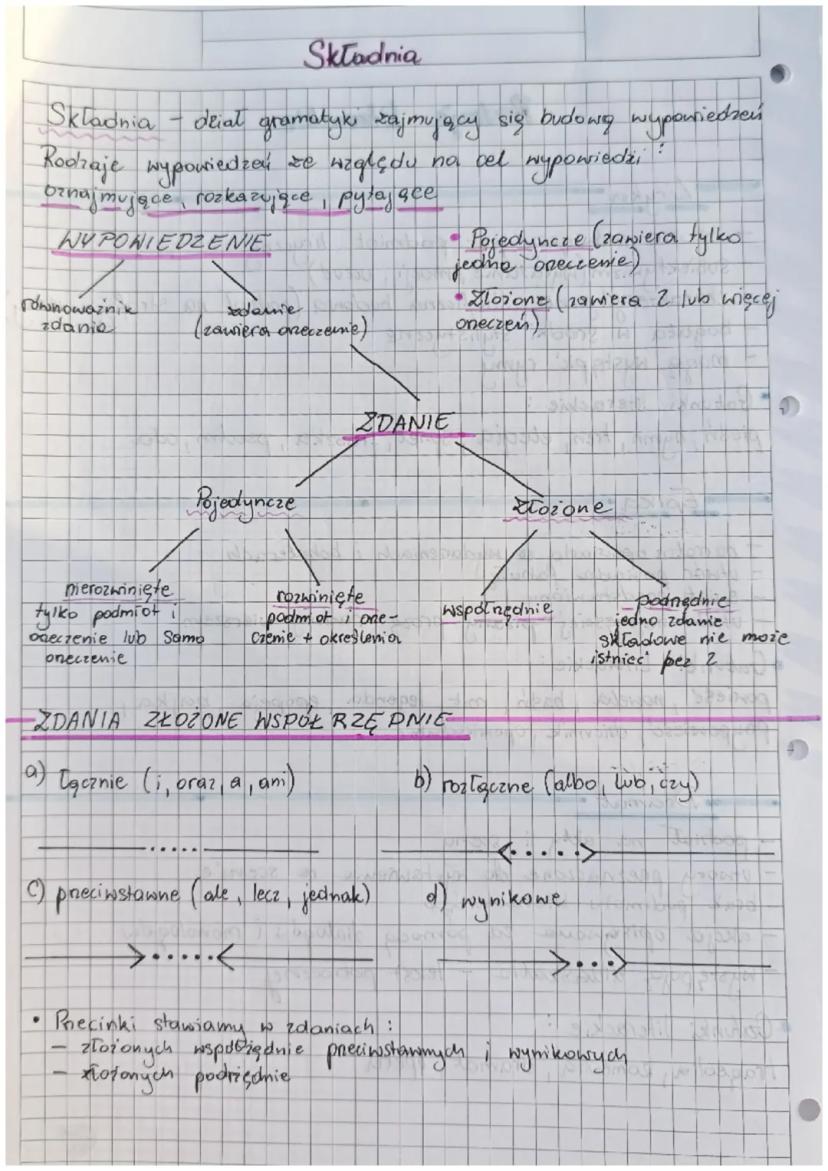 Składnia
Składnia - dział gramatyki zajmujący się budową wypowiedzeń
Rodzaje wypowiedzeń ze względu na cel wypowiedzi :
oznajmujące, rozkazujące, pytające
WYPOWIEDZENIE
równoważnik
zdania
zdanie
(zawiera orzeczenie)
• Pojedyncze (zawiera tylko
jedno orzeczenie)
• Złożone (zawiera 2 lub więcej
orzeczeń)
ZDANIE
Pojedyncze
Złożone
nierozwinięte
tylko podmiot i
orzeczenie lub samo
orzeczenie
rozwinięte
podmiot i orze-
czenie + określenia
współrzędnie
podrzędnie
jedno zdanie
składowe nie może
istnieć bez 2
ZDANIA ZŁOŻONE WSPÓŁRZĘDNIE
a) łącznie (i, oraz, a, ani)
b) rozłączne (albo, lub, czy)
c) przeciwstawne (ale, lecz, jednak)
d) wynikowe
• Przecinki stawiamy w zdaniach :
- złożonych współrzędnie przeciwstawnych i wynikowych
- złożonych podrzędnie